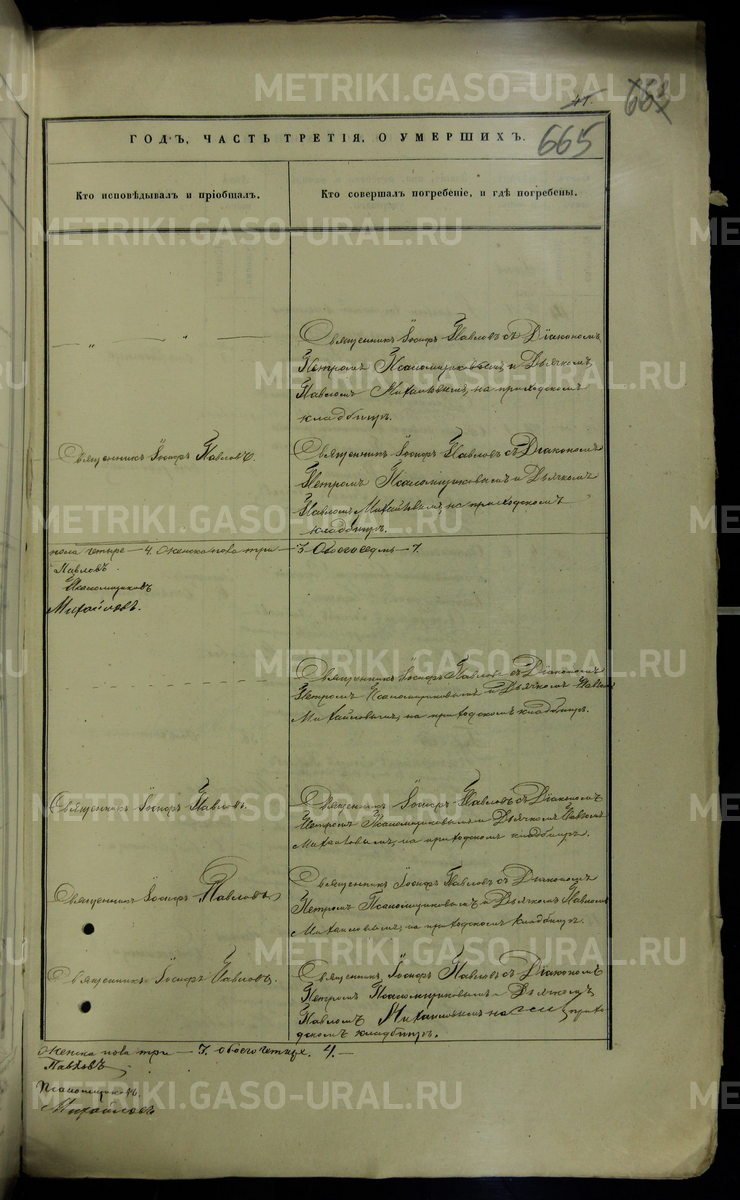 METRIKI.GASO-URAL.RU
41.
665
ГОДЪ, ЧАСТЬ ТРЕТІЯ, О УМЕРШИХЪ.
Кто исповѣдывалъ и пріобщалъ.
Кто совершалъ погребеніе, и гдѣ погребены.
Священникъ Іосифъ Павловъ съ Діакономъ
Петромъ Псаломщиковымъ и Дьячкомъ
Павломъ Михайловымъ, на приходскомъ
кладбищѣ.
Священникъ Іосифъ Павловъ.
Священникъ Іосифъ Павловъ съ Діакономъ
Петромъ Псаломщиковымъ и Дьячкомъ
Павломъ Михайловымъ, на приходскомъ
кладбищѣ.
пола четыре — 4. а женска пола три — 3. Обоего седмь — 7.
Павловъ.
Псаломщиковъ
Михайловъ.
Священникъ Іосифъ Павловъ съ Діакономъ
Петромъ Псаломщиковымъ и Дьячкомъ Павломъ
Михайловымъ, на приходскомъ кладбищѣ.
Священникъ Іосифъ Павловъ.
Священникъ Іосифъ Павловъ съ Діакономъ
Петромъ Псаломщиковымъ и Дьячкомъ Павломъ
Михайловымъ, на приходскомъ кладбищѣ.
Священникъ Іосифъ Павловъ
Священникъ Іосифъ Павловъ съ Діакономъ
Петромъ Псаломщиковымъ и Дьячкомъ Павломъ
Михайловымъ, на приходскомъ кладбищѣ.
Священникъ Іосифъ Павловъ.
Священникъ Іосифъ Павловъ съ Діакономъ
Петромъ Псаломщиковымъ и Дьячкомъ
Павломъ Михайловымъ на прихо-
дскомъ кладбищѣ.
а женска пола три — 3. обоего четыре. 4. —
Павловъ
Псаломщиковъ.
Михайловъ